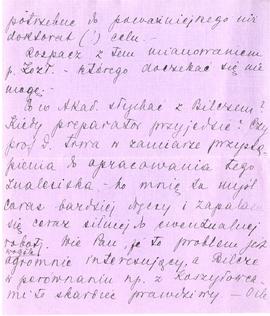 potrzebne do poważniejszego niż
doktorat (!) celu. —
Rozpacz z tem mianowaniem
p. Kozł. — którego doczekać się nie
mogę. —
Co w Akad. słychać z Bilczem?
Kiedy preparator przyjedzie? Czy
prof. D. ma zamiar przystą-
pienia do opracowania tego
znaleziska — bo mnie ta myśl
coraz bardziej dręczy i zapala
się coraz silniej do ewentualnej
roboty. Wie Pan, że to problem jest
wogóle
ogromnie interesujący, a Bilcze
w porównaniu np. z Koszyłowca-
mi to skarbiec prawdziwy — O ile